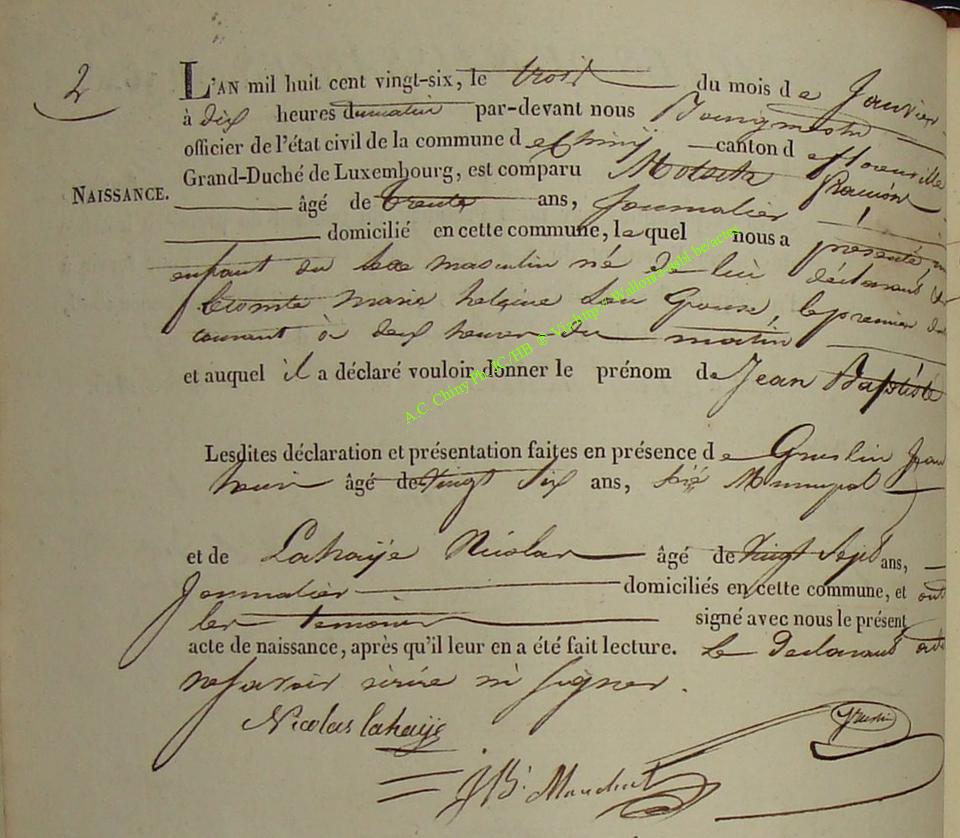 2
L'AN mil huit cent vingt-six, le trois du mois de Janvier
à dix heures du matin par-devant nous Bourgmestre
officier de l'état civil de la commune de Chiny canton de florenville
Grand-Duché de Luxembourg, est comparu
NAISSANCE.
âgé de trente ans, Journalier
domicilié en cette commune, lequel nous a présenté, un
enfant du sexe masculin né de lui déclarant et
marie son Epouse, le premier du
courant à deux heures du matin
et auquel il a déclaré vouloir donner le prénom de Jean Baptiste
Lesdites déclaration et présentation faites en présence de Jean
âgé de vingt six ans, Municipal
et de Lahaÿe Nicolas âgé de vingt Sept ans,
Journalier domiciliés en cette commune, et ont
les temoins signé avec nous le présent
acte de naissance, après qu'il leur en a été fait lecture. Le Declarant a dit
ne savoir ni signer.
Nicolas lahaÿe
JBt
A.C. Chiny Ph. JC/HB @ Via http://Wallonica.gel.be/actes